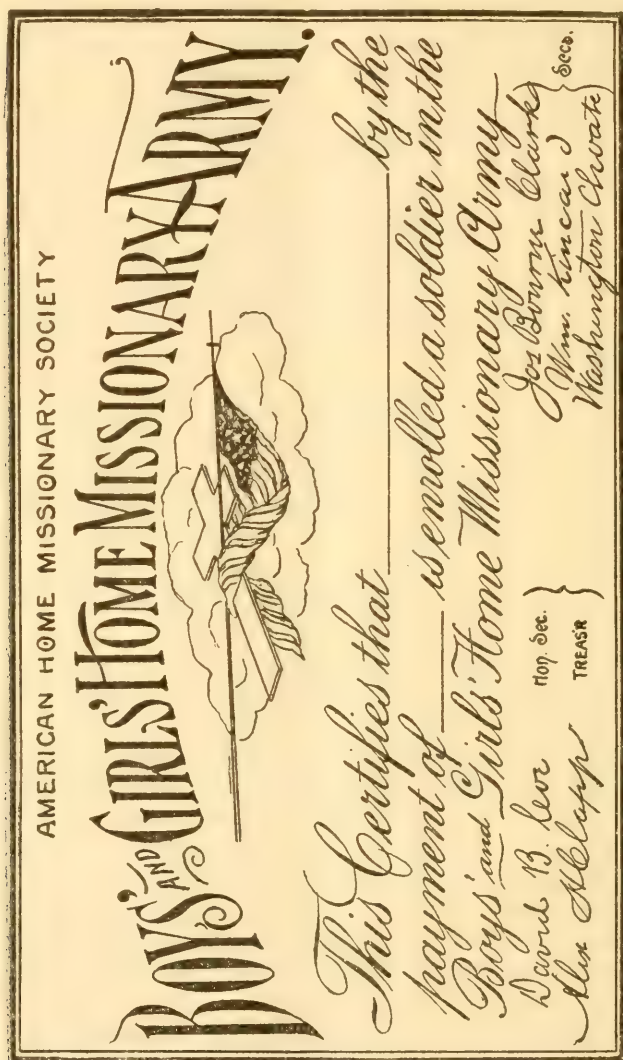 AMERICAN HOME MISSIONARY SOCIETY
BOYS' AND GIRLS' HOME MISSIONARY ARMY.
This Certifies that ______ by the
payment of ______ is enrolled a soldier in the
Boys' and Girls' Home Missionary Army
David B. Coe Hon. Sec.
Alex H Clapp TREAS'R
Jos Bourne Clark
Wm. Kincaid
Washington Choate
Secs.